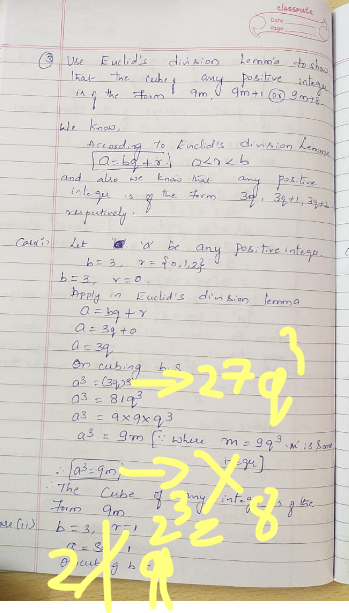 classmate
Date
Page
③ Use Euclid's division Lemma to show
that the cube of any positive integer
is of the form 9m, 9m+1 (or) 9m+8.
We know,
According to Euclid's division Lemma
a = bq + r, 0<r<b
and also we know that any positive
integer is of the form 3q, 3q+1, 3q+2
respectively.
Case(i) Let 'a' be any positive integer.
b = 3, r = {0,1,2}
b = 3, r = 0.
Apply in Euclid's division lemma
a = bq + r
a = 3q + 0
a = 3q
On cubing b.s
a³ = (3q)³ → 27q³
a³ = 81q³
a³ = 9×9×q³
a³ = 9m [∵ where m = 9q³ 'm' is some
integer]
∴ a³ = 9m → X
The Cube of any integer is of the
form 9m 2³ = 8
Case(ii) b = 3, r = 1
On cubing b